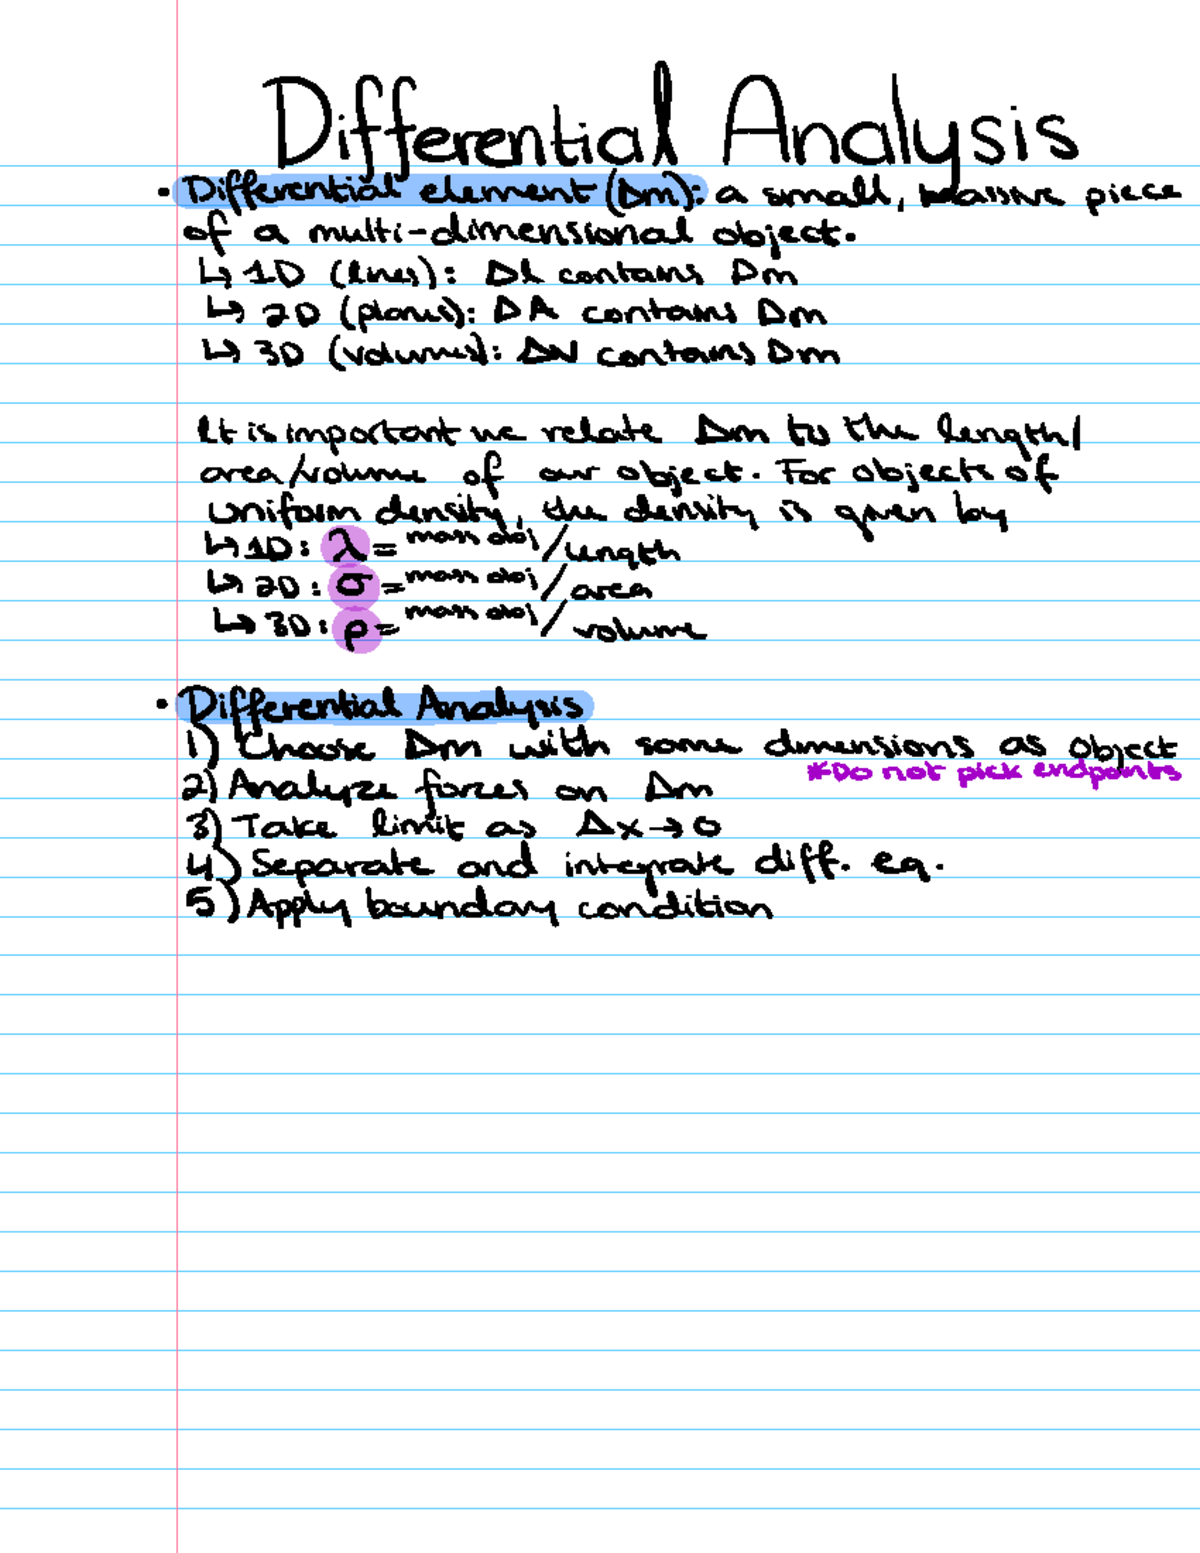 Differential Analysis
• Differential element (Δm): a small, massive piece
of a multi-dimensional object.
↳ 1D (lines): Δl contains Δm
↳ 2D (planes): ΔA contains Δm
↳ 3D (volumes): ΔV contains Δm
It is important we relate Δm to the length/
area/volume of our object. For objects of
uniform density, the density is given by
↳ 1D: λ = mass obj/length
↳ 2D: σ = mass obj/area
↳ 3D: ρ = mass obj/volume
• Differential Analysis
1) Choose Δm with some dimensions as object
*Do not pick endpoints
2) Analyze forces on Δm
3) Take limit as Δx→0
4) Separate and integrate diff. eq.
5) Apply boundary condition